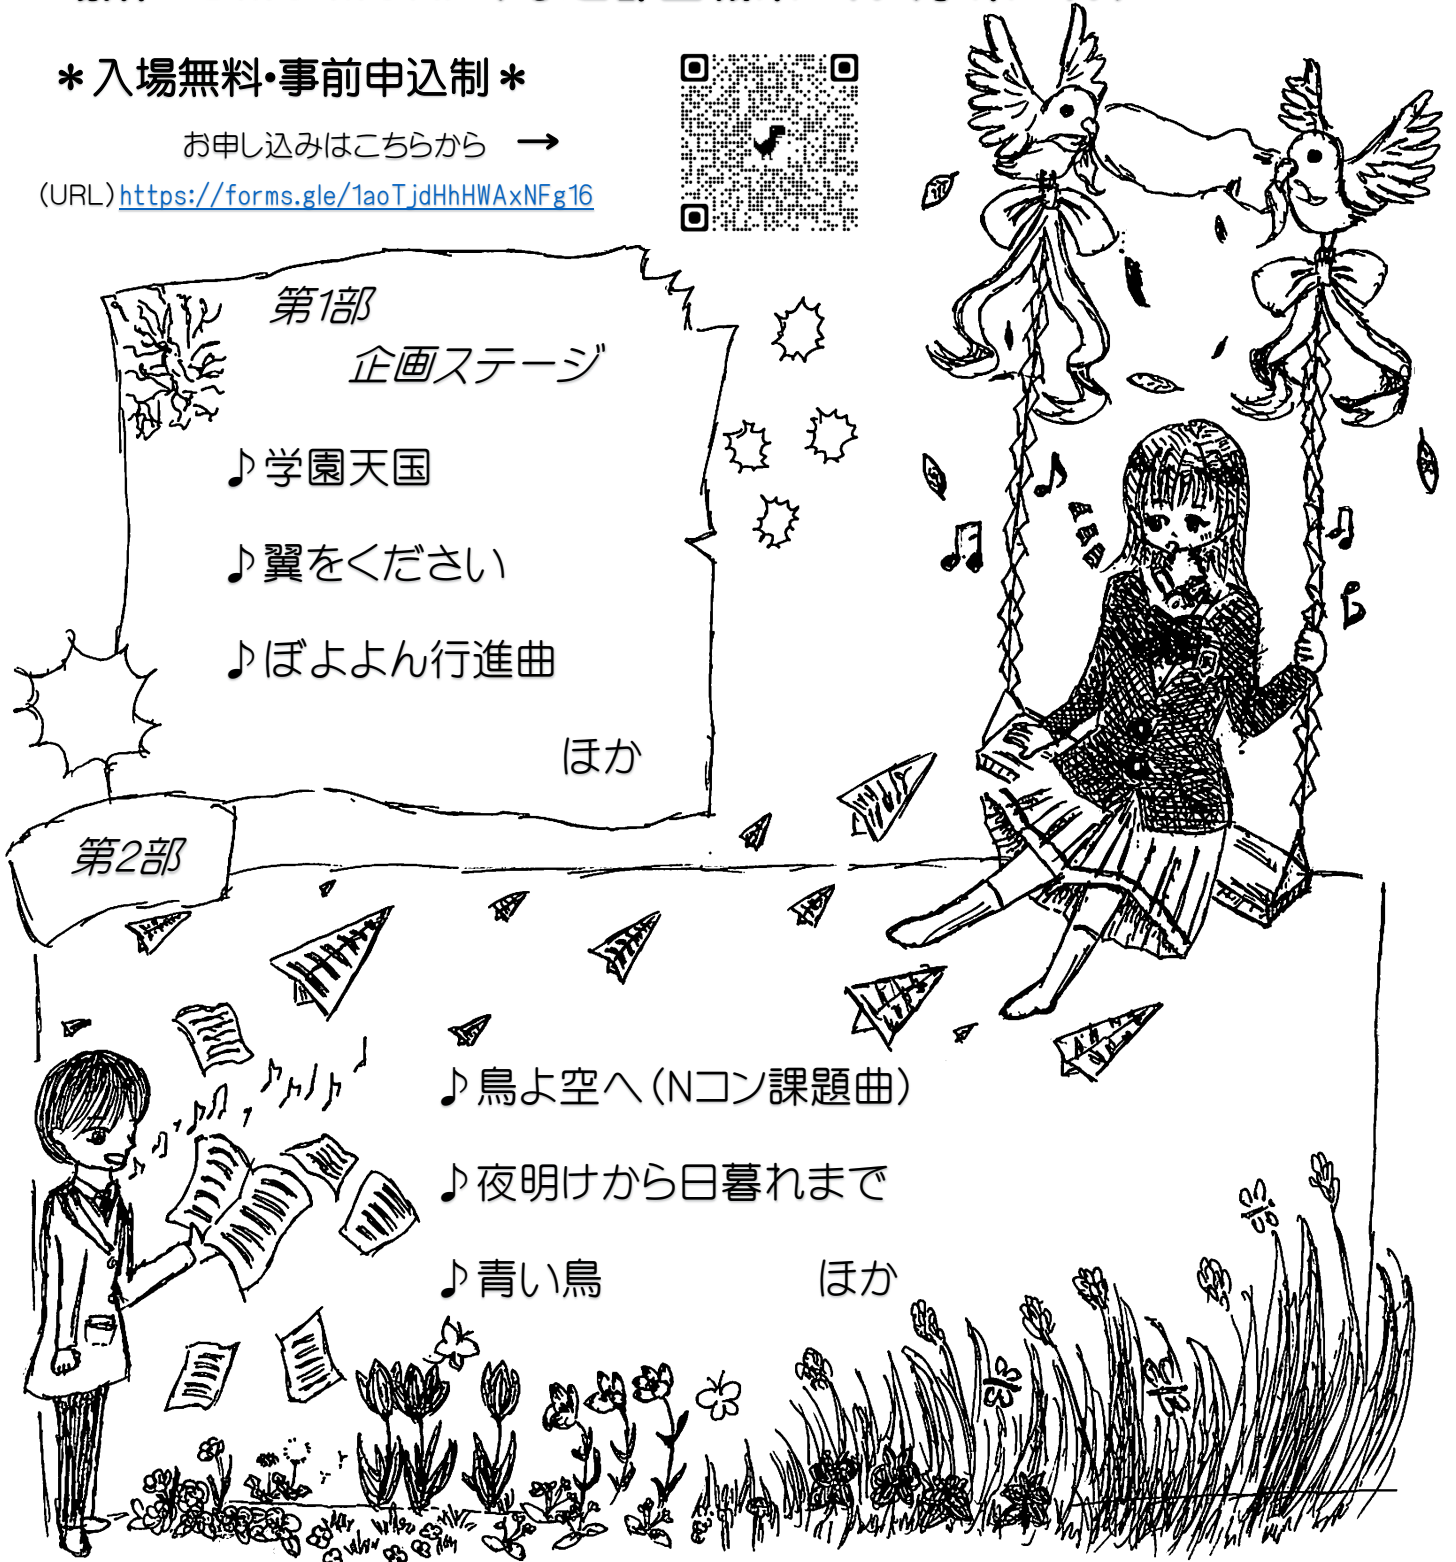 ＊入場無料・事前申込制＊
お申し込みはこちらから　→
(URL)https://forms.gle/1aoTjdHhHWAxNFg16
第1部
企画ステージ
♪学園天国
♪翼をください
♪ぼよよん行進曲
ほか
第2部
♪鳥よ空へ(Nコン課題曲)
♪夜明けから日暮れまで
♪青い鳥　ほか